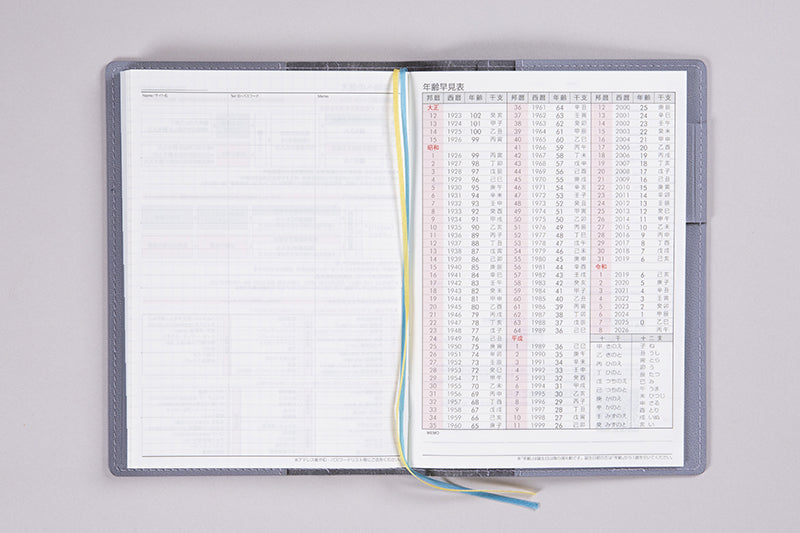 Name/サイト名 Tel ID・パスワード Memo
※アドレス帳やID・パスワードリスト等にご活用ください。
年齢早見表
邦暦 西暦 年齢 干支
大正
12 1923 102 癸亥
13 1924 101 甲子
14 1925 100 乙丑
15 1926 99 丙寅
昭和
1 1926 99 丙寅
2 1927 98 丁卯
3 1928 97 戊辰
4 1929 96 己巳
5 1930 95 庚午
6 1931 94 辛未
7 1932 93 壬申
8 1933 92 癸酉
9 1934 91 甲戌
10 1935 90 乙亥
11 1936 89 丙子
12 1937 88 丁丑
13 1938 87 戊寅
14 1939 86 己卯
15 1940 85 庚辰
16 1941 84 辛巳
17 1942 83 壬午
18 1943 82 癸未
19 1944 81 甲申
20 1945 80 乙酉
21 1946 79 丙戌
22 1947 78 丁亥
23 1948 77 戊子
24 1949 76 己丑
25 1950 75 庚寅
26 1951 74 辛卯
27 1952 73 壬辰
28 1953 72 癸巳
29 1954 71 甲午
30 1955 70 乙未
31 1956 69 丙申
32 1957 68 丁酉
33 1958 67 戊戌
34 1959 66 己亥
35 1960 65 庚子
邦暦 西暦 年齢 干支
36 1961 64 辛丑
37 1962 63 壬寅
38 1963 62 癸卯
39 1964 61 甲辰
40 1965 60 乙巳
41 1966 59 丙午
42 1967 58 丁未
43 1968 57 戊申
44 1969 56 己酉
45 1970 55 庚戌
46 1971 54 辛亥
47 1972 53 壬子
48 1973 52 癸丑
49 1974 51 甲寅
50 1975 50 乙卯
51 1976 49 丙辰
52 1977 48 丁巳
53 1978 47 戊午
54 1979 46 己未
55 1980 45 庚申
56 1981 44 辛酉
57 1982 43 壬戌
58 1983 42 癸亥
59 1984 41 甲子
60 1985 40 乙丑
61 1986 39 丙寅
62 1987 38 丁卯
63 1988 37 戊辰
64 1989 36 己巳
平成
1 1989 36 己巳
2 1990 35 庚午
3 1991 34 辛未
4 1992 33 壬申
5 1993 32 癸酉
6 1994 31 甲戌
7 1995 30 乙亥
8 1996 29 丙子
9 1997 28 丁丑
10 1998 27 戊寅
11 1999 26 己卯
邦暦 西暦 年齢 干支
12 2000 25 庚辰
13 2001 24 辛巳
14 2002 23 壬午
15 2003 22 癸未
16 2004 21 甲申
17 2005 20 乙酉
18 2006 19 丙戌
19 2007 18 丁亥
20 2008 17 戊子
21 2009 16 己丑
22 2010 15 庚寅
23 2011 14 辛卯
24 2012 13 壬辰
25 2013 12 癸巳
26 2014 11 甲午
27 2015 10 乙未
28 2016 9 丙申
29 2017 8 丁酉
30 2018 7 戊戌
31 2019 6 己亥
令和
1 2019 6 己亥
2 2020 5 庚子
3 2021 4 辛丑
4 2022 3 壬寅
5 2023 2 癸卯
6 2024 1 甲辰
7 2025 0 乙巳
8 2026 丙午
十干
甲 きのえ
乙 きのと
丙 ひのえ
丁 ひのと
戊 つちのえ
己 つちのと
庚 かのえ
辛 かのと
壬 みずのえ
癸 みずのと
十二支
子 ね
丑 うし
寅 とら
卯 う
辰 たつ
巳 み
午 うま
未 ひつじ
申 さる
酉 とり
戌 いぬ
亥 い
MEMO
※「年齢」は誕生日以降の満年齢です。誕生日前の方は「年齢」から1歳を引いてください。